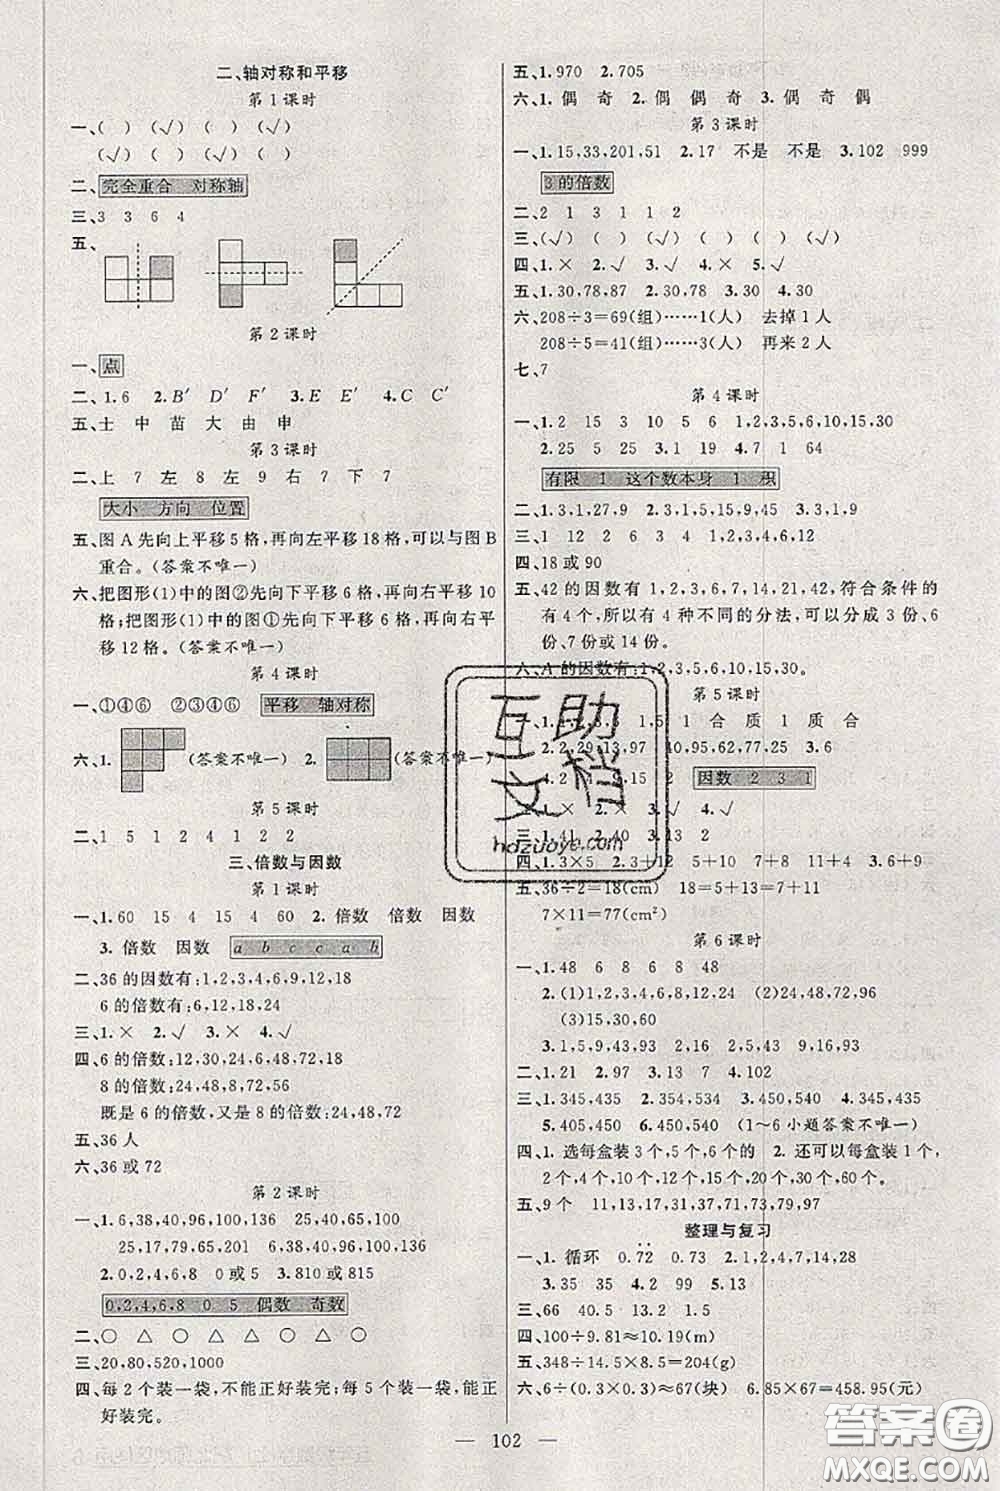 二、轴对称和平移
第1课时
一、( ) (√) ( ) (√)
(√) ( ) (√) ( )
二、完全重合 对称轴
三、3 3 6 4
五、
第2课时
一、点
二、1.6 2.B′ D′ F′ 3.E′ E′ 4.C C′
五、士 中 苗 大 由 申
第3课时
二、上 7 左 8 左 9 右 7 下 7
大小 方向 位置
五、图A先向上平移5格,再向左平移18格,可以与图B
重合。(答案不唯一)
六、把图形(1)中的图②先向下平移6格,再向右平移10
格;把图形(1)中的图①先向下平移6格,再向右平移
12格。(答案不唯一)
第4课时
一、①④⑥ ②③④⑥ 平移 轴对称
六、1. (答案不唯一) 2. (答案不唯一)
第5课时
二、1 5 1 2 4 1 2 2
三、倍数与因数
第1课时
一、1.60 15 4 15 4 60 2.倍数 倍数 因数
3.倍数 因数 a b c c a b
二、36的因数有:1,2,3,4,6,9,12,18
6的倍数有:6,12,18,24
三、1.× 2.√ 3.× 4.√
四、6的倍数:12,30,24,6,48,72,18
8的倍数:24,48,8,72,56
既是6的倍数,又是8的倍数:24,48,72
五、36人
六、36或72
第2课时
一、1.6,38,40,96,100,136 25,65,201
25,17,79,65,201 6,38,40,96,100,136
2.0,2,4,6,8 0或5 3.810或815
0,2,4,6,8 0 5 偶数 奇数
二、○ △ ○ △ ○ △ ○ △
三、20,80,520,1000
四、每2个装一袋,不能正好装完;每5个装一袋,能正
好装完。
五、1.970 2.705
六、1.偶 奇 2.偶 偶 奇 3.偶 奇 偶
第3课时
一、1.15,33,201,51 2.17 不是 不是 3.102 999
3的倍数
二、2 1 3 1 1 2
三、(√) (√) ( ) ( ) ( ) (√)
四、1.× 2.√ 3.√ 4.× 5.√
五、1.30,78,87 2.30,78 3.30 4.30
六、208÷3=69(组)……1(人) 去掉1人
208÷5=41(组)……3(人) 再来2人
七、7
第4课时
一、1.2 15 3 10 5 6 1,2,3,5,6,10,15,30
2.25 5 25 3.1 4.7 1 64
有限 1 这个数本身 1 积
二、1.3,1,27,9 2.3,1,5,15,9,45 3.3,1,9
三、1 12 2 6 3 4 1 2 3 6
四、18或90
五、42的因数有1,2,3,6,7,14,21,42,符合条件的
有4个,所以有4种不同的分法,可以分成3份、6
份、7份或14份。
六、A的因数有:1,2,3,5,6,10,15,30。
第5课时
1 合 质 1 质 合
2.2,29,13,97 40,95,62,77,25 3.6
因数 2 3 1
二、1.× 2.× 3.√ 4.√
三、1.41 2.40 3.13 2
四、1.3×5 2.3+12 5+10 7+8 3.17 4.6
五、36÷2=18(cm) 18=5+13=7+11
7×11=77(cm²)
第6课时
一、1.48 6 8 6 8 48
2.(1)12,15,18,21,24 (2)24,48,72,96
(3)15,30,60
3.1,2,3,5,31,67 2,4,9,16,93 9,16,93
二、1.21 2.97 3.13 7 4.102
三、1.345,435 2.354,534 3.450,540 4.345,435
5.405,450 6.450,540 (1~6小题答案不唯一)
四、1.选每盒装3个,5个,6个的 2.还可以每盒装1个,
2个,4个,10个,12个,15个,20个,30个,60个。
五、9个 11,13,17,31,37,71,73,79,97
整理与复习
一、1.循环 0.7̇2̇ 2.1,2,4,7,14,28
3.35 35 4.2 99 5.13
三、66 40.5 13.2 1.5
四、100÷9.81≈10.19(m)
五、348÷14.5×8.5=204(g)
六、6÷(0.3×0.3)≈67(块) 6.85×67=458.95(元)
— 102 —
互助
文档
hdzuoye.com
答案圈
MXQE.COM